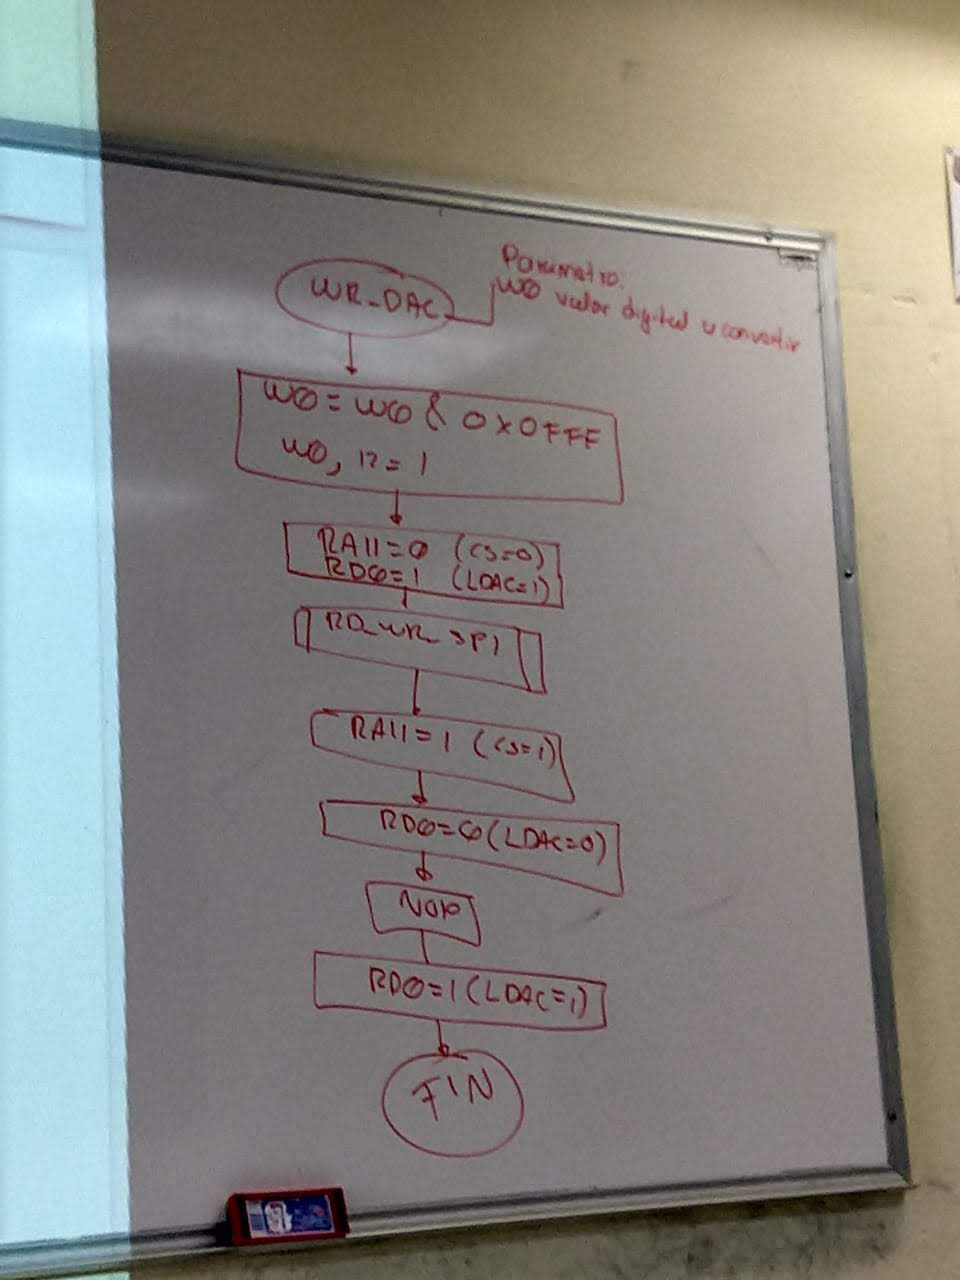 WR_DAC
Parametro:
W0 valor digital a convertir
W0 = W0 & 0x0FFF
W0, 12 = 1
RA11=0 (CS=0)
RD0=1 (LDAC=1)
RD_WR_SPI
RA11=1 (CS=1)
RD0=0 (LDAC=0)
NOP
RD0=1 (LDAC=1)
FIN